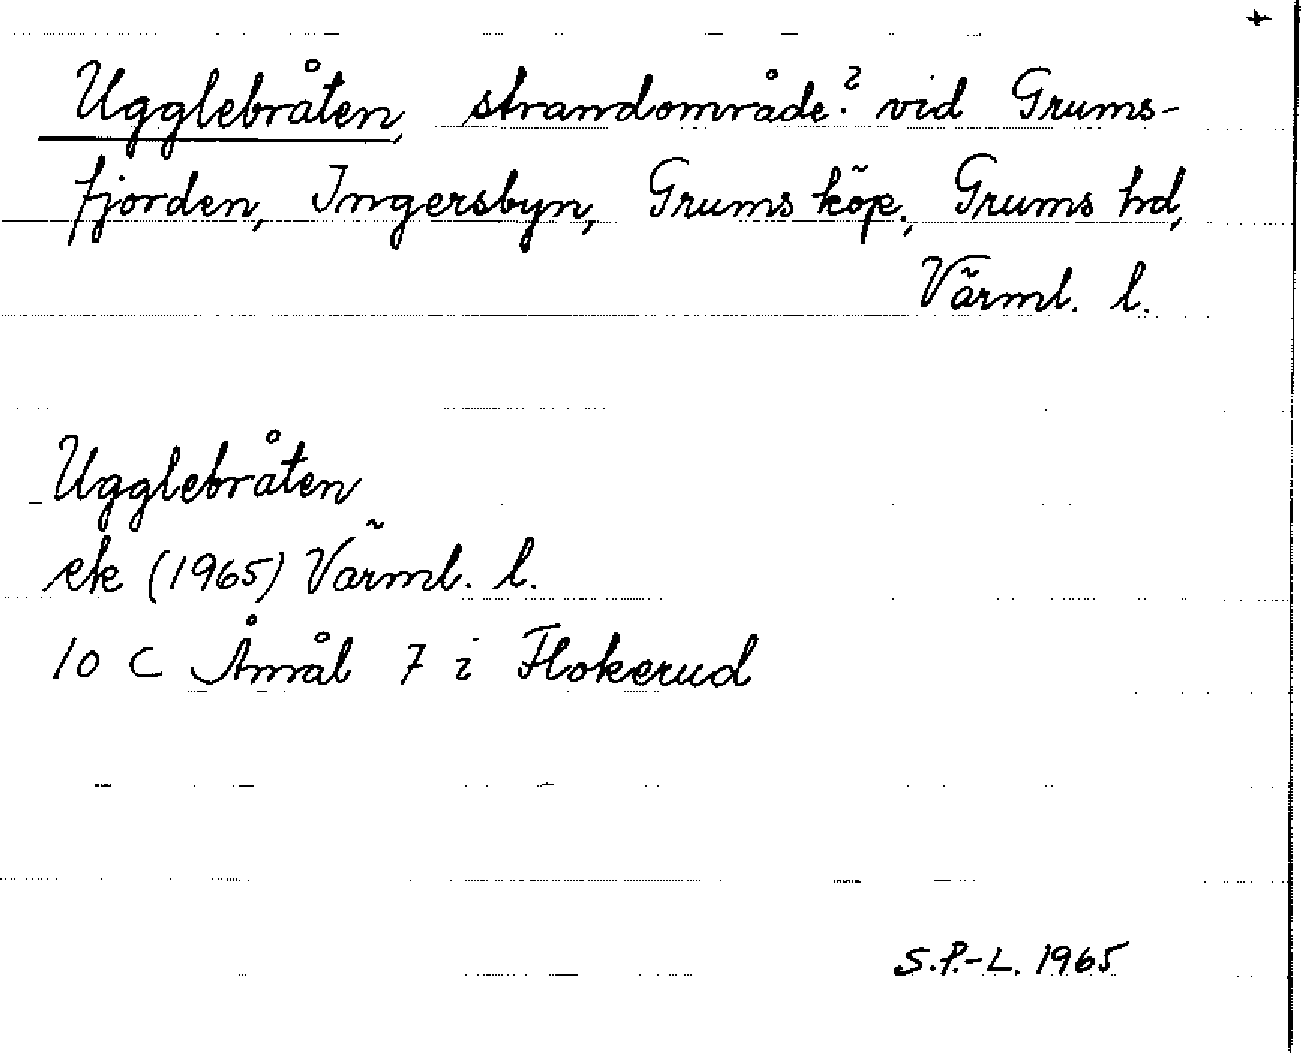 +
Ugglebråten, strandområde? vid Grums-
fjorden, Ingersbyn, Grums köp., Grums hd,
Värml. l.
Ugglebråten
ek (1965) Värml. l.
10 C Åmål 7 i Flokerud
S.P.-L. 1965